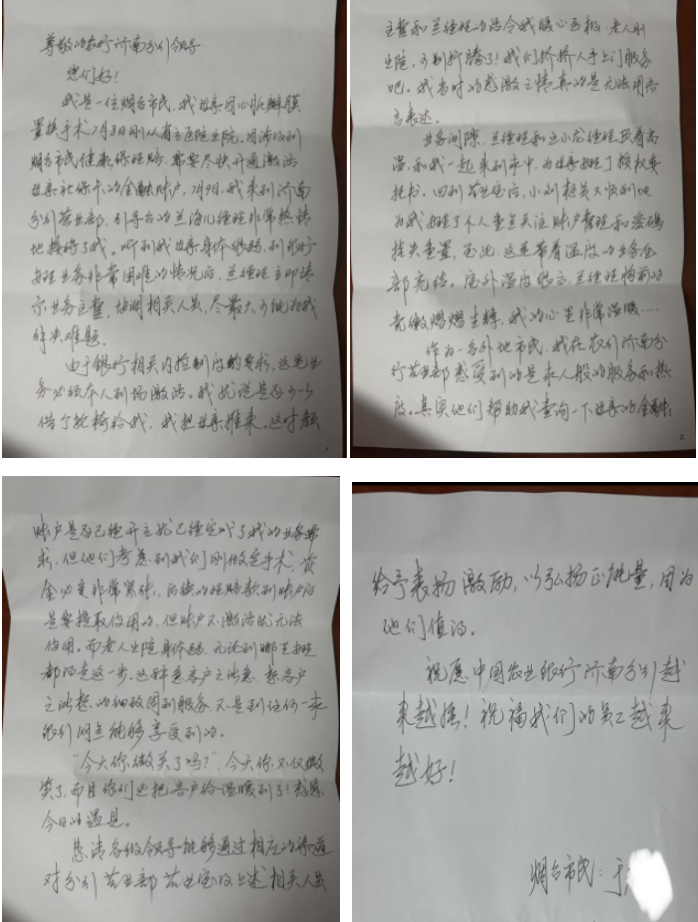 尊敬的农行济南分行领导：
您们好！
我是一位烟台市民，我母亲因心脏瓣膜
置换手术7月8日刚从省立医院出院。因涉及到
烟台市民健康保理赔，需要尽快开通激活
母亲社保卡的金融账户，7月9日，我来到济南
分行营业部，引导台的兰海儿经理非常热情
地接待了我。听到我母亲身体很弱，到银行
办理业务非常困难的情况后，兰经理立即请
示业务主管，协调相关人员，尽最大可能为我
解决难题。
由于银行相关内控制度的要求，这笔业
务必须本人到场激活。我就说是否可以
借个轮椅给我，我把母亲推来。这时颜
1
主管和兰经理的话令我暖心至极：老人刚
出院，可别折腾了！我们挤挤人手上门服务
吧。我当时的感激之情真的是无法用语
言表述。
业务间隙，兰经理和王小龙经理顶着高
温，和我一起来到家中，为母亲办理了授权委
托书。回到营业室后，小刘柜员又顺利地
为我办理了个人查询关注账户管理和密码
挂失重置，至此，这笔带着温度的业务全
部完结。室外温度很高，兰经理胸前的
党徽熠熠生辉，我的心里非常温暖……
作为一名外地市民，我在农行济南分
行营业部感受到的是家人般的服务和热
度。其实他们帮助我查询一下母亲的金融
2
账户是否已经开立就已经完成了我的业务需
求，但他们考虑到我们刚做完手术，资
金必定非常紧张，后续的理赔款到账户后
是要提取使用的，但账户不激活就无法
使用。而老人出院身体弱，无论到哪里办理
都得走这一步。这种急客户之所急，想客户
之所想的细致周到服务，不是到任何一家
银行网点能够享受到的。
“今天你微笑了吗？”，今天你不仅微
笑了，而且你们还把客户给温暖到了！感恩
今日的遇见。
恳请各级领导能够通过相应的渠道
对分行营业部营业室及上述相关人员
给予表扬激励，以弘扬正能量，因为
他们值得。
祝愿中国农业银行济南分行越
来越强！祝福我们的员工越来
越好！
烟台市民：于